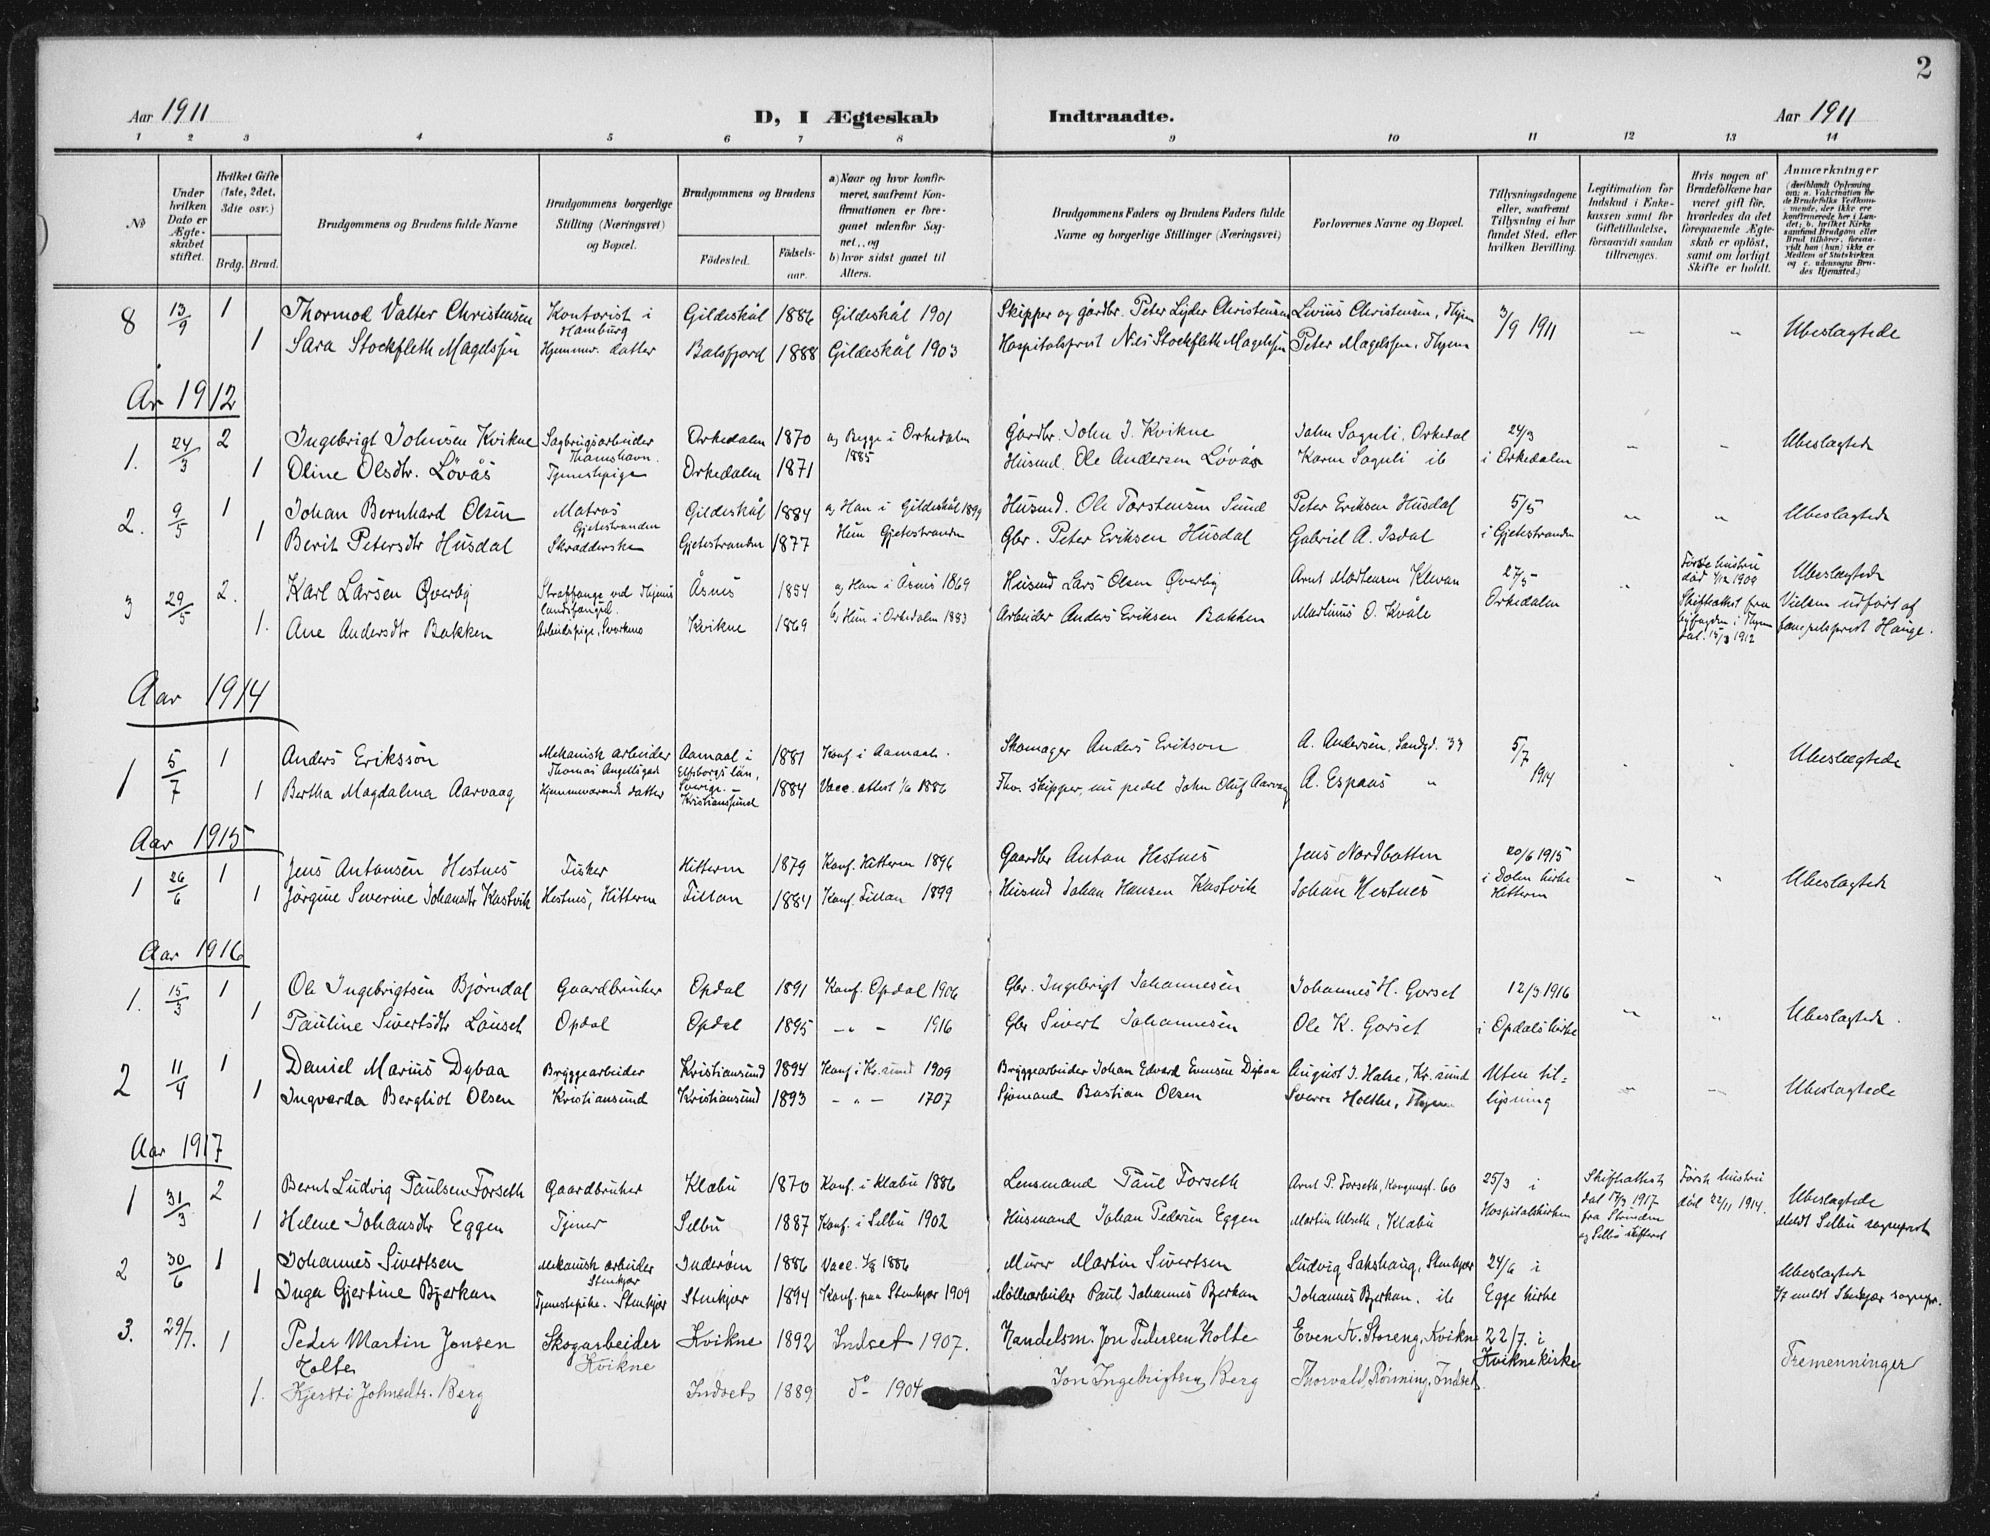 2
Aar 1911 D, I Ægteskab Indtraadte. Aar 1911
1 2 3 4 5 6 7 8 9 10 11 12 13 14
No
Under hvilken Dato er Ægteskabet stiftet.
Hvilket Gifte (1ste, 2det, 3die osv.)
Brdg. Brud.
Brudgommens og Brudens fulde Navne
Brudgommens borgerlige Stilling (Næringsvei) og Bopæl.
Brudgommens og Brudens
Fødested. Fødsels-aar.
a) Naar og hvor konfirmeret, saafremt Konfirmationen er foregaaet udenfor Sognet, og
b) hvor sidst gaaet til Alters.
Brudgommens Faders og Brudens Faders fulde Navne og borgerlige Stillinger (Næringsvei)
Forlovernes Navne og Bopæl.
Tillysningsdagene eller, saafremt Tillysning ei har fundet Sted, efter hvilken Bevilling.
Legitimation for Indskud i Enkekassen samt for Giftetilladelse, forsaavidt saadan tiltrænges.
Hvis nogen af Brudefolkene har været gift før, hvorledes da det foregaaende Ægteskab er opløst, samt om lovligt Skifte er holdt.
Anmærkninger
8 13/9 1 Thormod Valter Christensen Kontorist i Hamburg Gildeskål 1886 Gildeskål 1901 Skipper og gårdbr. Peter Lyder Christensen Livius Christensen, Thjem 3/9 1911 Ubeslagtede
1 Sara Stockfleth Magelssen Hjemmev. datter Balsfjord 1888 Gildeskål 1903 Hospitalsprest Nils Stockfleth Magelssen Peter Magelssen, Thjem
År 1912
1. 24/3 2 Ingebrigt Johnsen Kvikne Sagbrugsarbeider Thamshavn Orkedalen 1870 a) Begge i Orkedalen 1885 Gårdbr. John J. Kvikne John Saguli, Orkedal 24/3 Ubeslagtede
1 Oline Olsdtr. Løvås Tjenestepige Orkedalen 1871 Husmd. Ole Andersen Løvås Karen Saguli ib i Orkedalen
2. 9/5 1 Johan Bernhard Olsen Matros Gjeitestranden Gildeskål 1884 a) Han i Gildeskål 1899 Husmd. Ole Torstensen Sund Peter Eriksen Husdal 5/5 Ubeslagtede
1 Berit Petersdtr Husdal Skrædderske 1877 Hun Gbr. Peter Eriksen Husdal Gabriel A. Isdal
3 29/5 2. Karl Larsen Øverby Straffange ved Thjems landsfængsel. Åsnes 1854 a) Han i Åsnes 1869 Husmd Lars Olsen Øverby Arnt Madtensen Klevan 27/5 Første hustru død 1909 Ubeslagtede
1. Ane Andersdtr Bakken Arbeidspige, Svorkmo Kvikne 1869 b) Hun i Orkedalen 1883 Arbeider Anders Eriksen Bakken Martinus O. Kvåle Orkedalen Skifteattest fra byfogden i Thjem dat. 15/3 1912 Vielsen udført af fængselsprest Hauge.
Aar 1914
1 5/7 1 Anders Eriksson Mekanisk arbeider Thomas Angellsgad Aamaal i Elfsborgs län, Sverige. 1881 Konf. i Aamaal. Skomager Anders Erikson A. Andersen, Sandgd. 33 5/7 1914 Ubeslægtede
1 Bertha Magdalena Aarvaag Hjemmeværende datter Kristianssund 1884 Vacc. attest 1/6 1886 Fhv. skipper, nu pedel John Oluf Aarvaag A. Espaas "
Aar 1915
1 26/6 1 Jens Antonsen Hestnes Fisker Hitteren 1879 Konf. Hitteren 1896 Gaardbr Anton Hestnes Jens Nordbotten 20/6 1915 Ubeslagtede
1 Jørgine Severine Johansdtr Kastvik Hestnes, Hitteren Fillan 1884 Konf. Fillan 1899 Husmd Johan Hansen Kastvik Johan Hestnes i Dolm kirke Hitteren
Aar 1916
1. 15/3 1 Ole Ingebrigtsen Bjørndal Gaardbruker Opdal 1891 Konf. Opdal 1906 Gbr. Ingebrigt Johannesen Johannes H. Gorset 12/3 1916 Ubeslagtede.
1 Pauline Sivertsdtr Lønset Opdal Opdal 1895 - " - 1916 Gbr Sivert Johannesen Ole K. Gorset i Opdals kirke
2 11/4 1 Daniel Marius Dybaa Bryggearbeider Kristiansund 1894 Konf i Kr.sund 1909 Bryggearbeider Johan Edvard Evensen Dybaa August J. Halse, Kr.sund Uten til= Ubeslagtede
1 Ingvarda Bergliot Olsen Kristiansund Kristiansund 1893 - " - 1707 Sjømand Bastian Olsen Sverre Holthe, Thjem lysning
Aar 1917
1 31/3 2 Bernt Ludvig Paulsen Forseth Gaardbruker Klæbu 1870 Konf. i Klæbu 1886 Lensmand Paul Forseth Arnt P. Forseth, Kongensgt. 60 25/3 i Skifteattest dat 17/3 1917 fra Strinden og Selbu skifteret Første hustru død 22/11 1914. Ubeslagtede
1 Helene Johansdtr Eggen Tjener Selbu 1887 Konf. i Selbu 1902 Husmand Johan Pedersen Eggen Martin Ulseth, Klæbu Hospitalskirken Meldt Selbu sogneprest
2 30/6 1 Johannes Sivertsen Mekanisk arbeider Stenkjær Inderøen 1886 Vacc. 1/8 1886 Murer Martin Sivertsen Ludvig Sakshaug, Stenkjær 24/6 i Ubeslagtede
1 Inga Gjertine Bjerkan Tjenestepike. Stenkjær Stenkjær 1894 Konf. paa Stenkjær 1909 Møllearbeider Paul Johannes Bjerkan Johannes Bjerkan. ib Egge kirke meldt Stenkjær sognepr.
3. 29/7. 1 Peder Martin Jonsen Holte Skogarbeider Kvikne Kvikne 1892 Indset 1907. Handelsm. Jon Pedersen Holte Even K. Storeng, Kvikne 22/7. i Kvikne kirke Tremenninger
1. Kjersti Johnsdtr. Berg Indset 1889 do 1904 Jon Ingebrigtsen Berg Thorvald Rønning, Indset